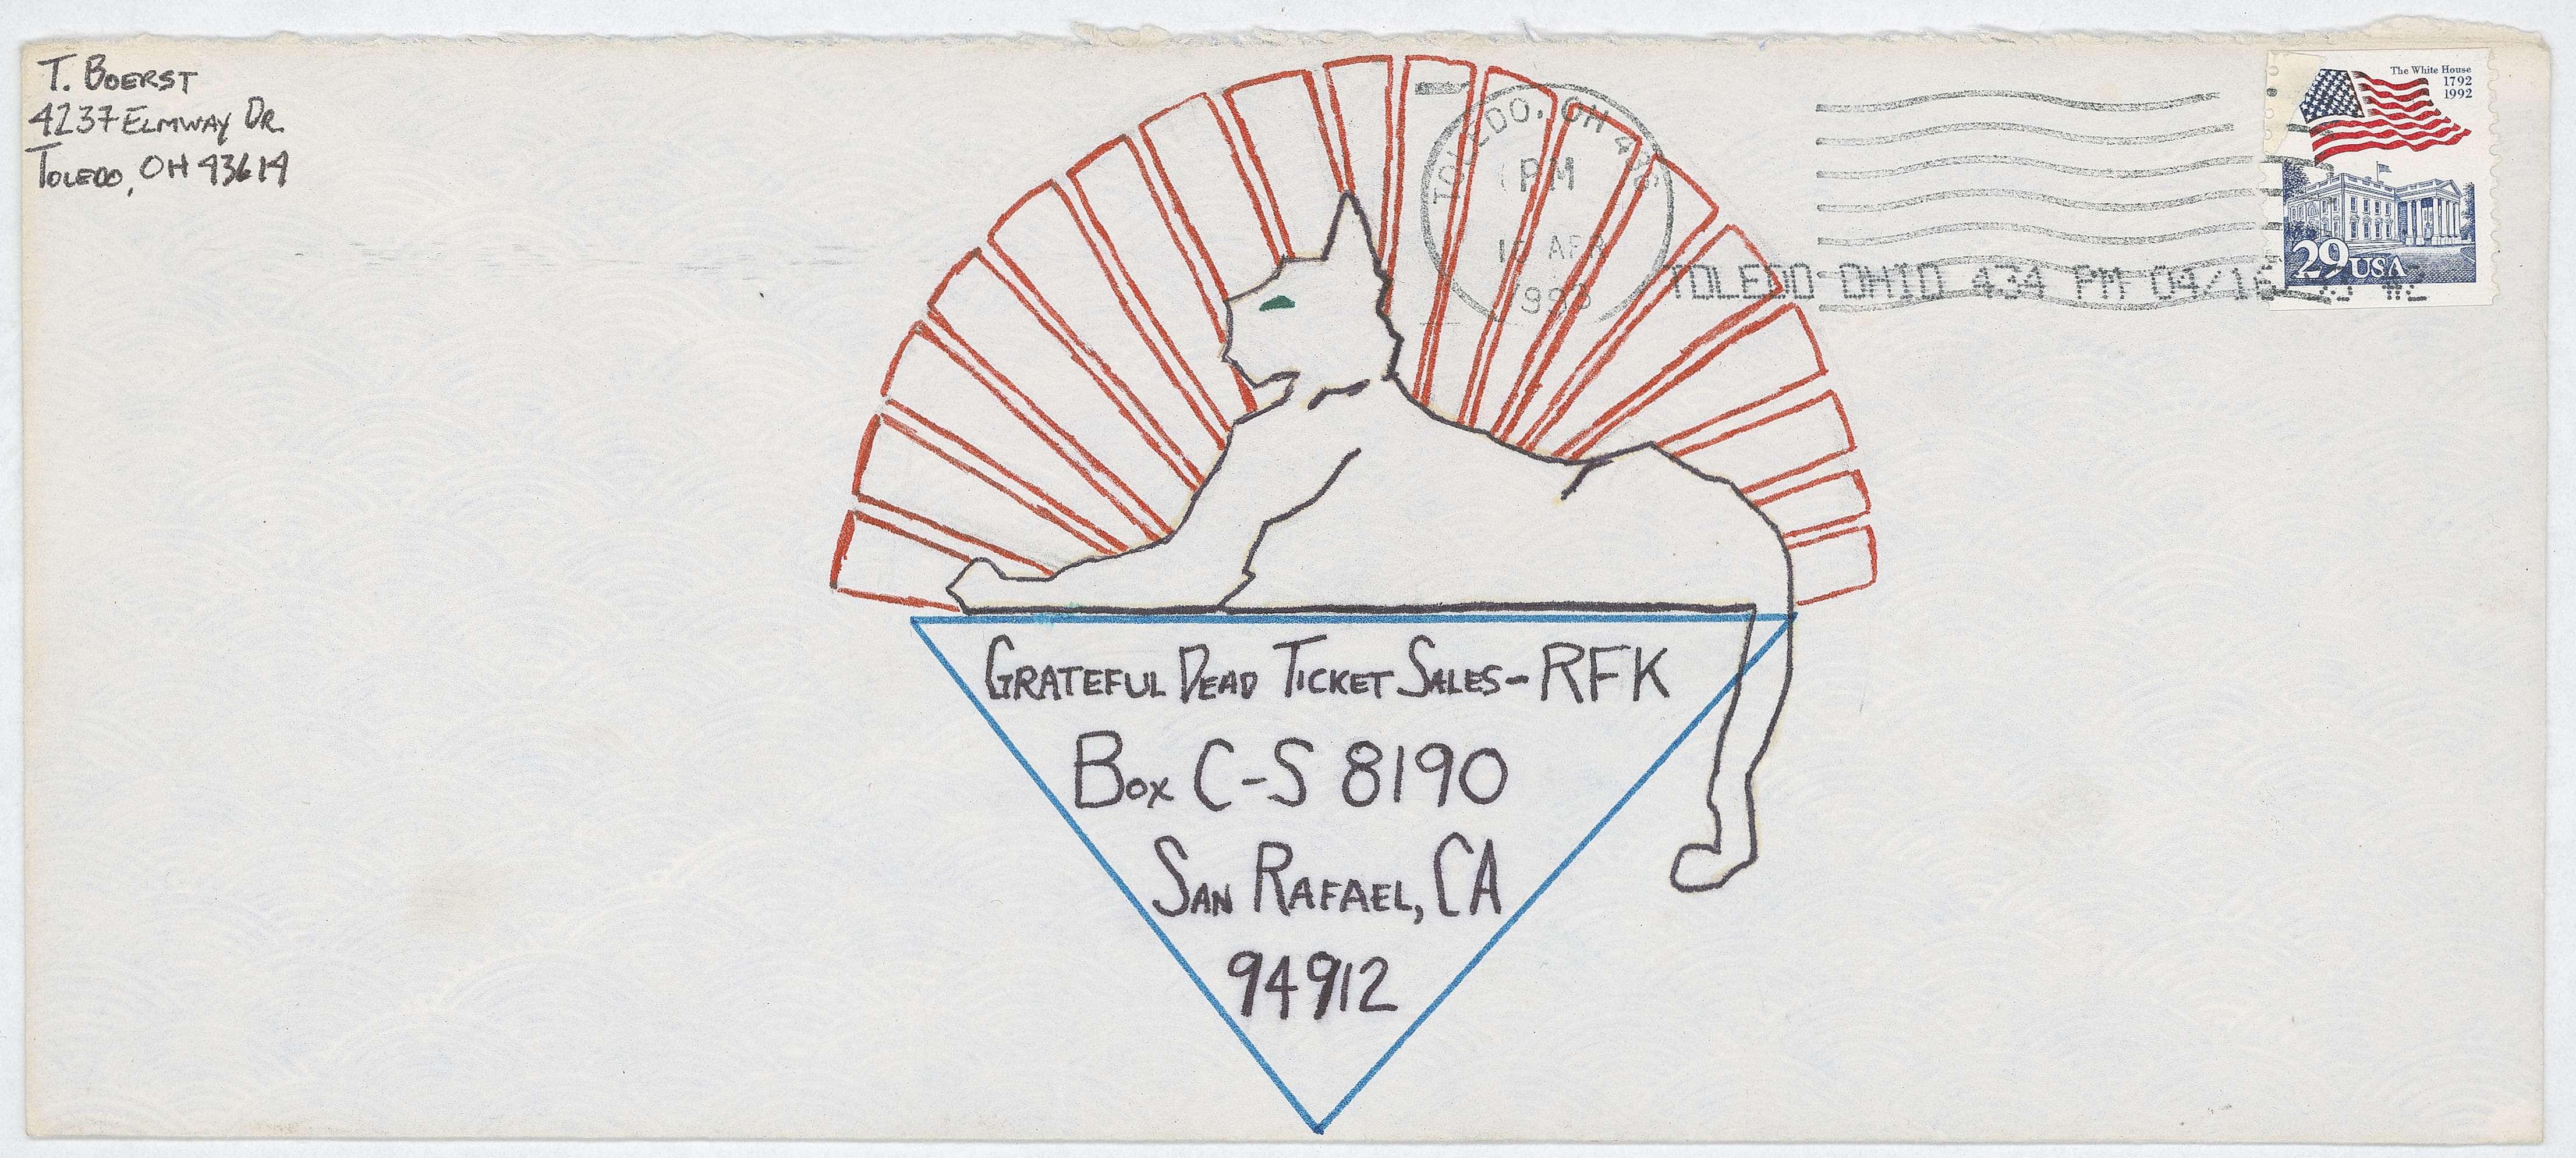 T. BOERST
4237 ELMWAY DR.
TOLEDO, OH 43614
The White House
1792
1992
29 USA
TOLEDO, OH
PM
APR
TOLEDO OHIO 434 PM 04/16
GRATEFUL DEAD TICKET SALES-RFK
BOX C-S 8190
SAN RAFAEL, CA
94912